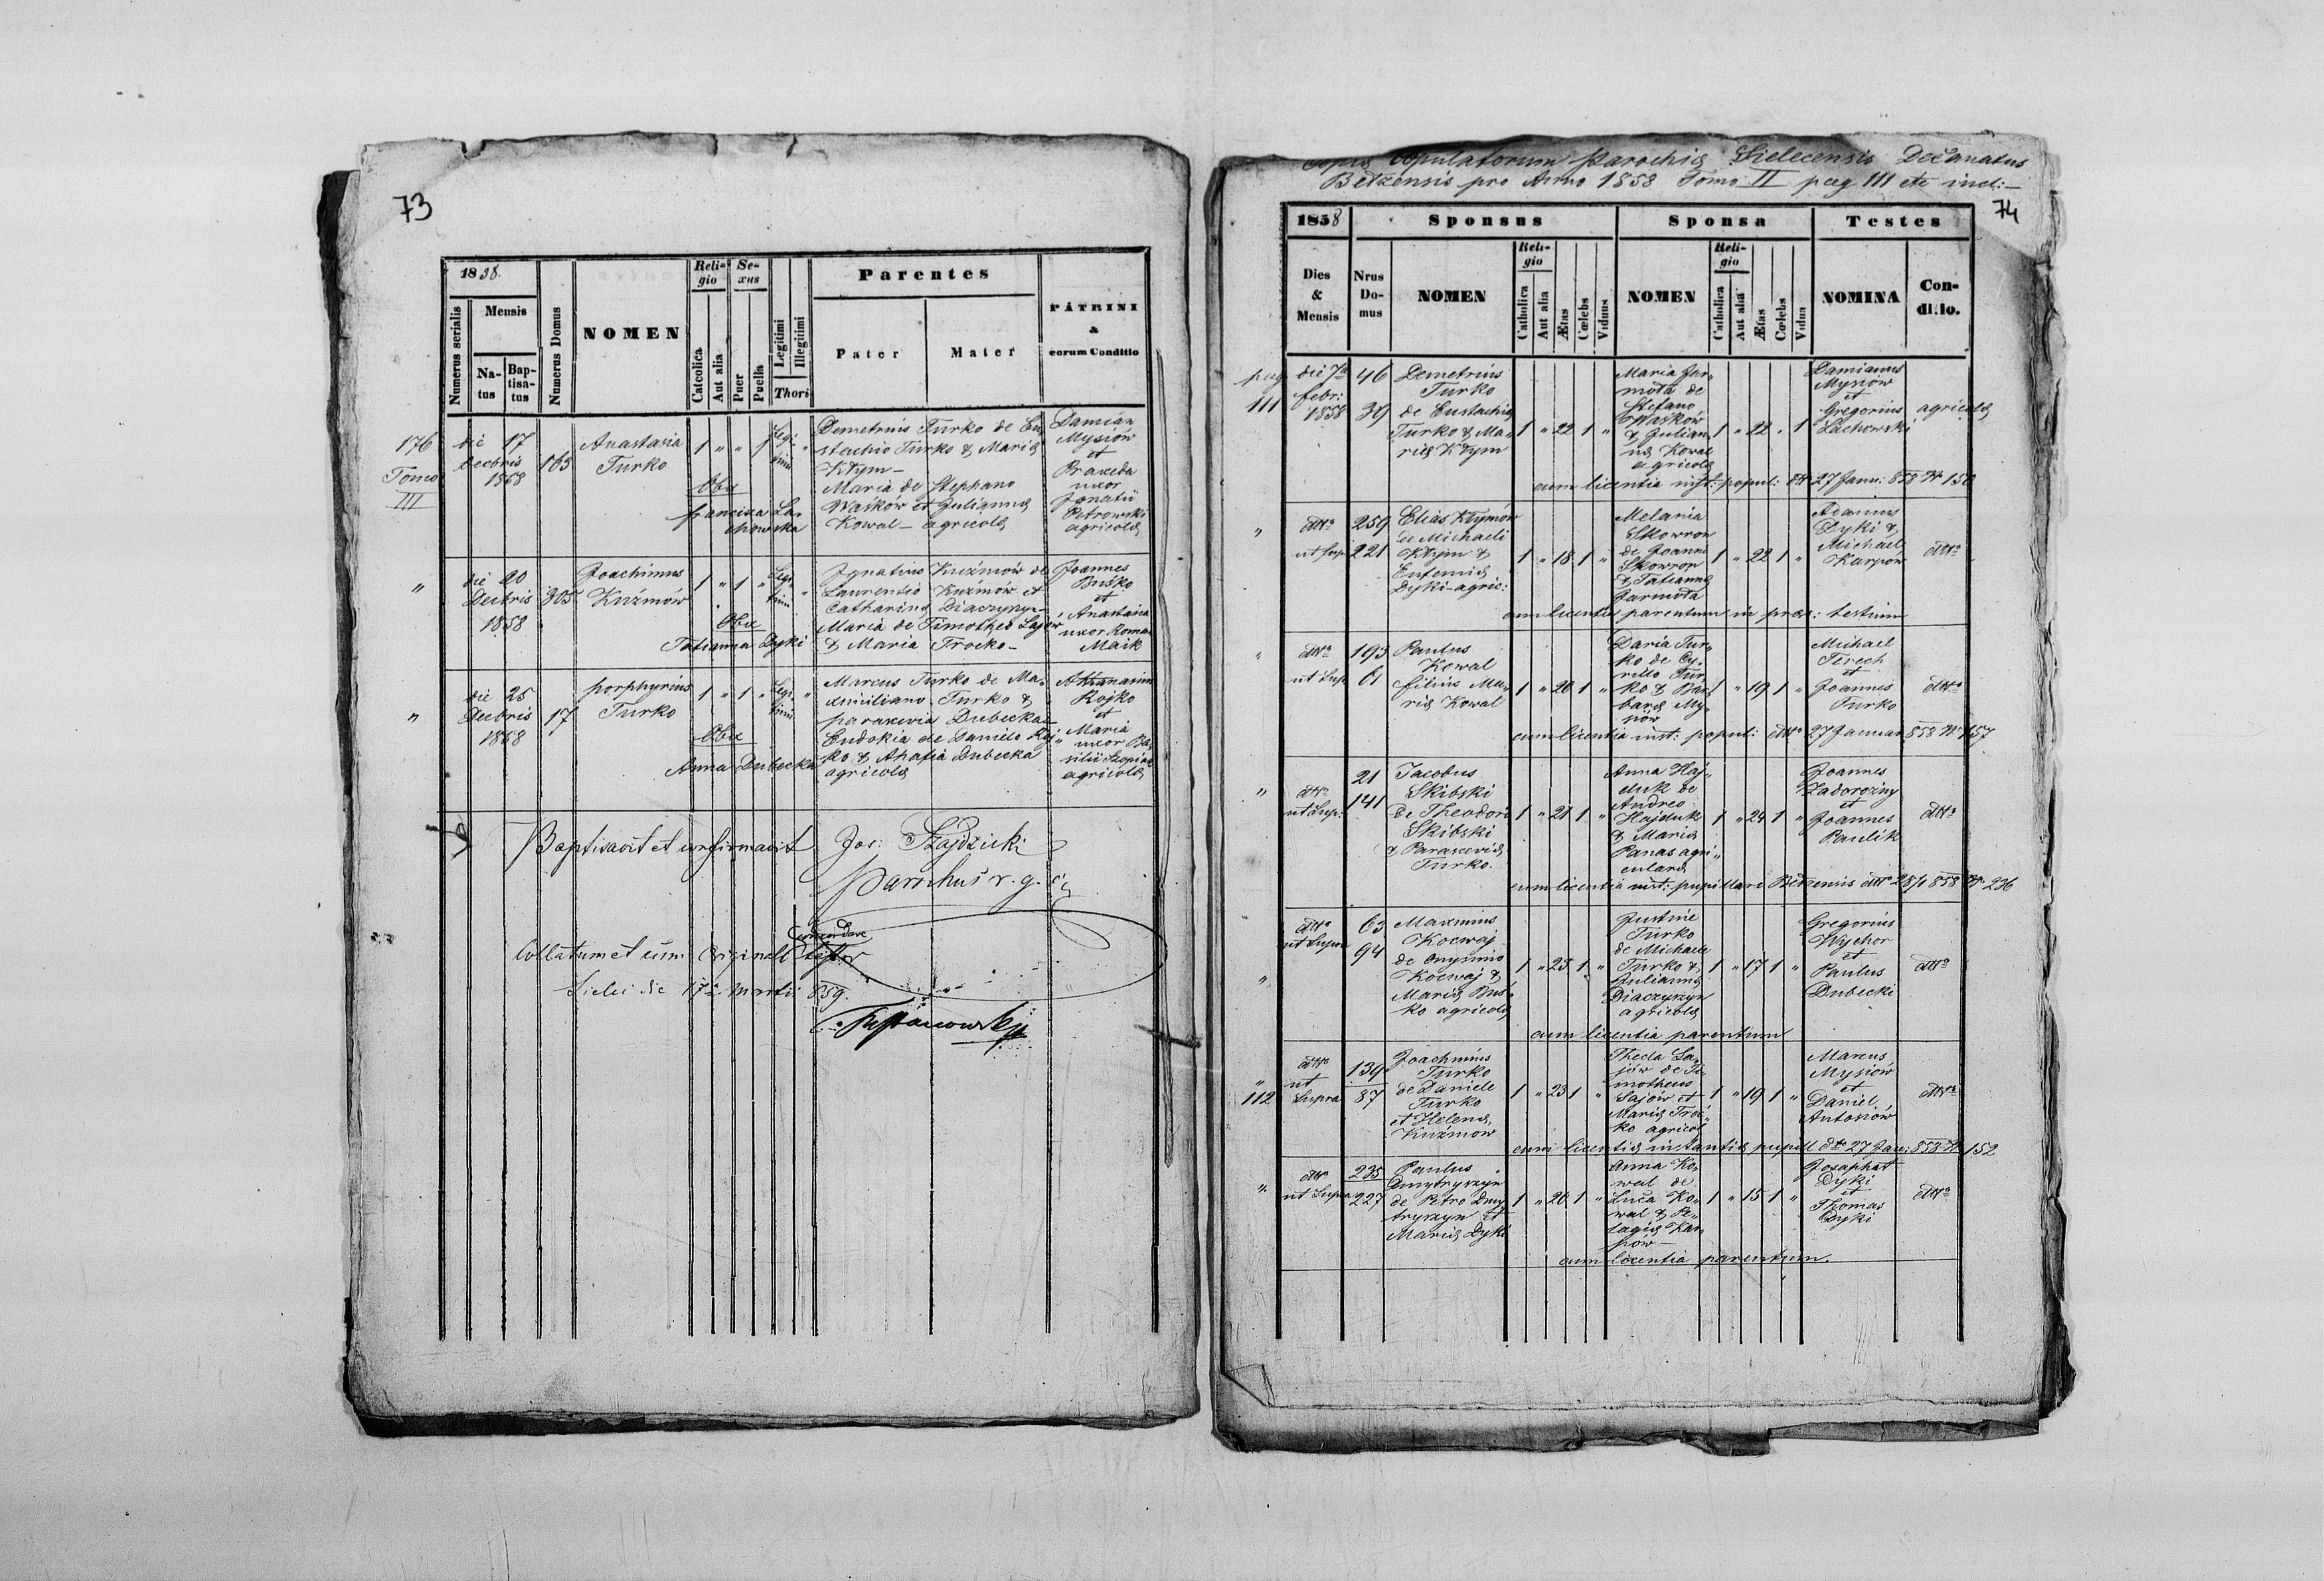 73
1858.
Numerus serialis
Mensis
Natus
Baptisatus
Numerus Domus
NOMEN
Religio
Catcolica
Aut alia
Sexus
Puer
Puella
Legitimi
Illegitimi
Thori
Parentes
Pater
Mater
PATRINI
&
eorum Conditio
176
Tomo
III
die 17
Decbris
1858
163
Anastasia
Turko
1 " " 1 Legi-
timi "
Obst
Francisca La-
chowska
Demetrius Turko de Eu-
stachio Turko & Maria
Kłym -
Maria de Stephano
Waśków et Julianna
Kowal - agricola
Damian
Mysiów
et
Praxeda
uxor
Ignatii
Petrowski
agricola
"
die 20
Decbris
1858
305
Joachimus
Kuźmów
1 " 1 " Legi-
timi "
Obst
Tatianna Dyki
Ignatius Kuźmów de
Laurentio Kuźmów et
Catharina Diaczyszyn -
Maria de Timotheo Sajów
& Maria Trocko -
Joannes
Buśko
et
Anastasia
uxor Roman
Maik
"
die 25
Decbris
1858
17
porphyrius
Turko
1 " 1 " Legi-
timi "
Obst
Anna Dubecka
Marcus Turko de Ma-
ximiliano Turko &
paraxevia Dubecka
Eudokia de Danilo Roj-
ko & Ahafia Dubecka
agricola
Athanasius
Rojko
et
Maria
uxor Ba-
silii
agricola
Baptisavit et confirmavit Jos:
Parochus r. g. c.
Collatum et cum Originali
Sielci die 17a Martii 859.
Copia Copulatorum Parochia Sielecensis Decanatus
Betzensis pro Anno 1858 Tomo II pag 111 etc incl: -
74
1858
Dies
&
Mensis
Nrus
Do-
mus
Sponsus
NOMEN
Religio
Catholica
Aut alia
Ætas
Cœlebs
Viduus
Sponsa
NOMEN
Religio
Catholica
Aut alia
Ætas
Cœlebs
Vidua
Testes
NOMINA
Con-
ditio.
pag
111
die 7a
febr:
1858
46
39
Demetrius
Turko
de Eustachia
Turko & Ma-
ria Kłym
1 " 22 1 "
Maria Jur-
mota de
Stefano
Waśków
& Julian-
na Kowal
agricola
1 " 22 . 1
Damianus
Mysiów
et
Gregorius
Lachowski
agricola
cum licentia inst: popul: dto 27 Janu: 858 Nr 150
"
dtto
ut Sup:
259
221
Elias Kłymów
de Michaeli
Kłym &
Eufemia
Dyki - agric:
1 " 18 1 "
Melania
Skowron
de Joanne
Skowron
& Tatianna
Jurmota
1 " 22 1 "
Adamus
Dyki &
Michael
Karpów
dtto
cum licentia parentum in præs: testium
"
dtto
ut Sup
193
61
Paulus
Kowal
filius Ma-
ria Kowal
1 " 20 1 "
Daria Tur-
ko de Cy-
rillo Tur-
ko & Bar-
bara My-
siów
1 " 19 1 "
Michael
Terech
et
Joannes
Turko
dtto
cum licentia inst: popul: dtto 27 Januar 858 Nr 157
"
dtto
ut Sup:
21
141
Jacobus
Skibski
de Theodori
Skibski
& Paraxevia
Turko.
1 " 21 1 "
Anna Haj-
duk de
Andreo
Hajduk
& Maria
Panas agri-
culara
1 " 24 1 "
Joannes
Zadorożny
et
Joannes
Paulik
dtto
cum licentia inst: pupillari Betzensis dtto 28/1 858 Nr 236
"
dtto
ut Supra
63
94
Maxmius
Kocwaj
de Onysimo
Kocwaj &
Maria Bus-
ko agricola
1 " 25 1 "
Justine
Turko
de Michaele
Turko &
Julianna
Diaczyszyn
agricola
1 " 17 1 "
Gregorius
Wychor
et
Paulus
Dubecki
dtto
cum licentia parentum
"
112
dtto
ut
Supra
139
87
Joachmius
Turko
de Daniele
Turko
et Helena
Kuźmow
1 " 23 1 "
Thecla Sa-
jów de Ti-
motheus
Sajów et
Maria Troc-
ko agricol
1 " 19 1 "
Marcus
Mysiow
et
Daniel
Antosiów
dtto
cum licentia instantia pupill dto 27 Jan: 858 Nr 152
"
dtto
ut Supra
235
227
Paulus
Dmytryszyn
de Petro Dmy-
tryszyn et
Maria Dyki
1 " 20 1 "
Anna Ko-
wal de
Luca Ko-
wal & Pe-
lagia Kar-
pów -
1 " 15 1 "
Josaphat
Dyki
et
Thomas
Dyki
dtto
cum licentia parentum.